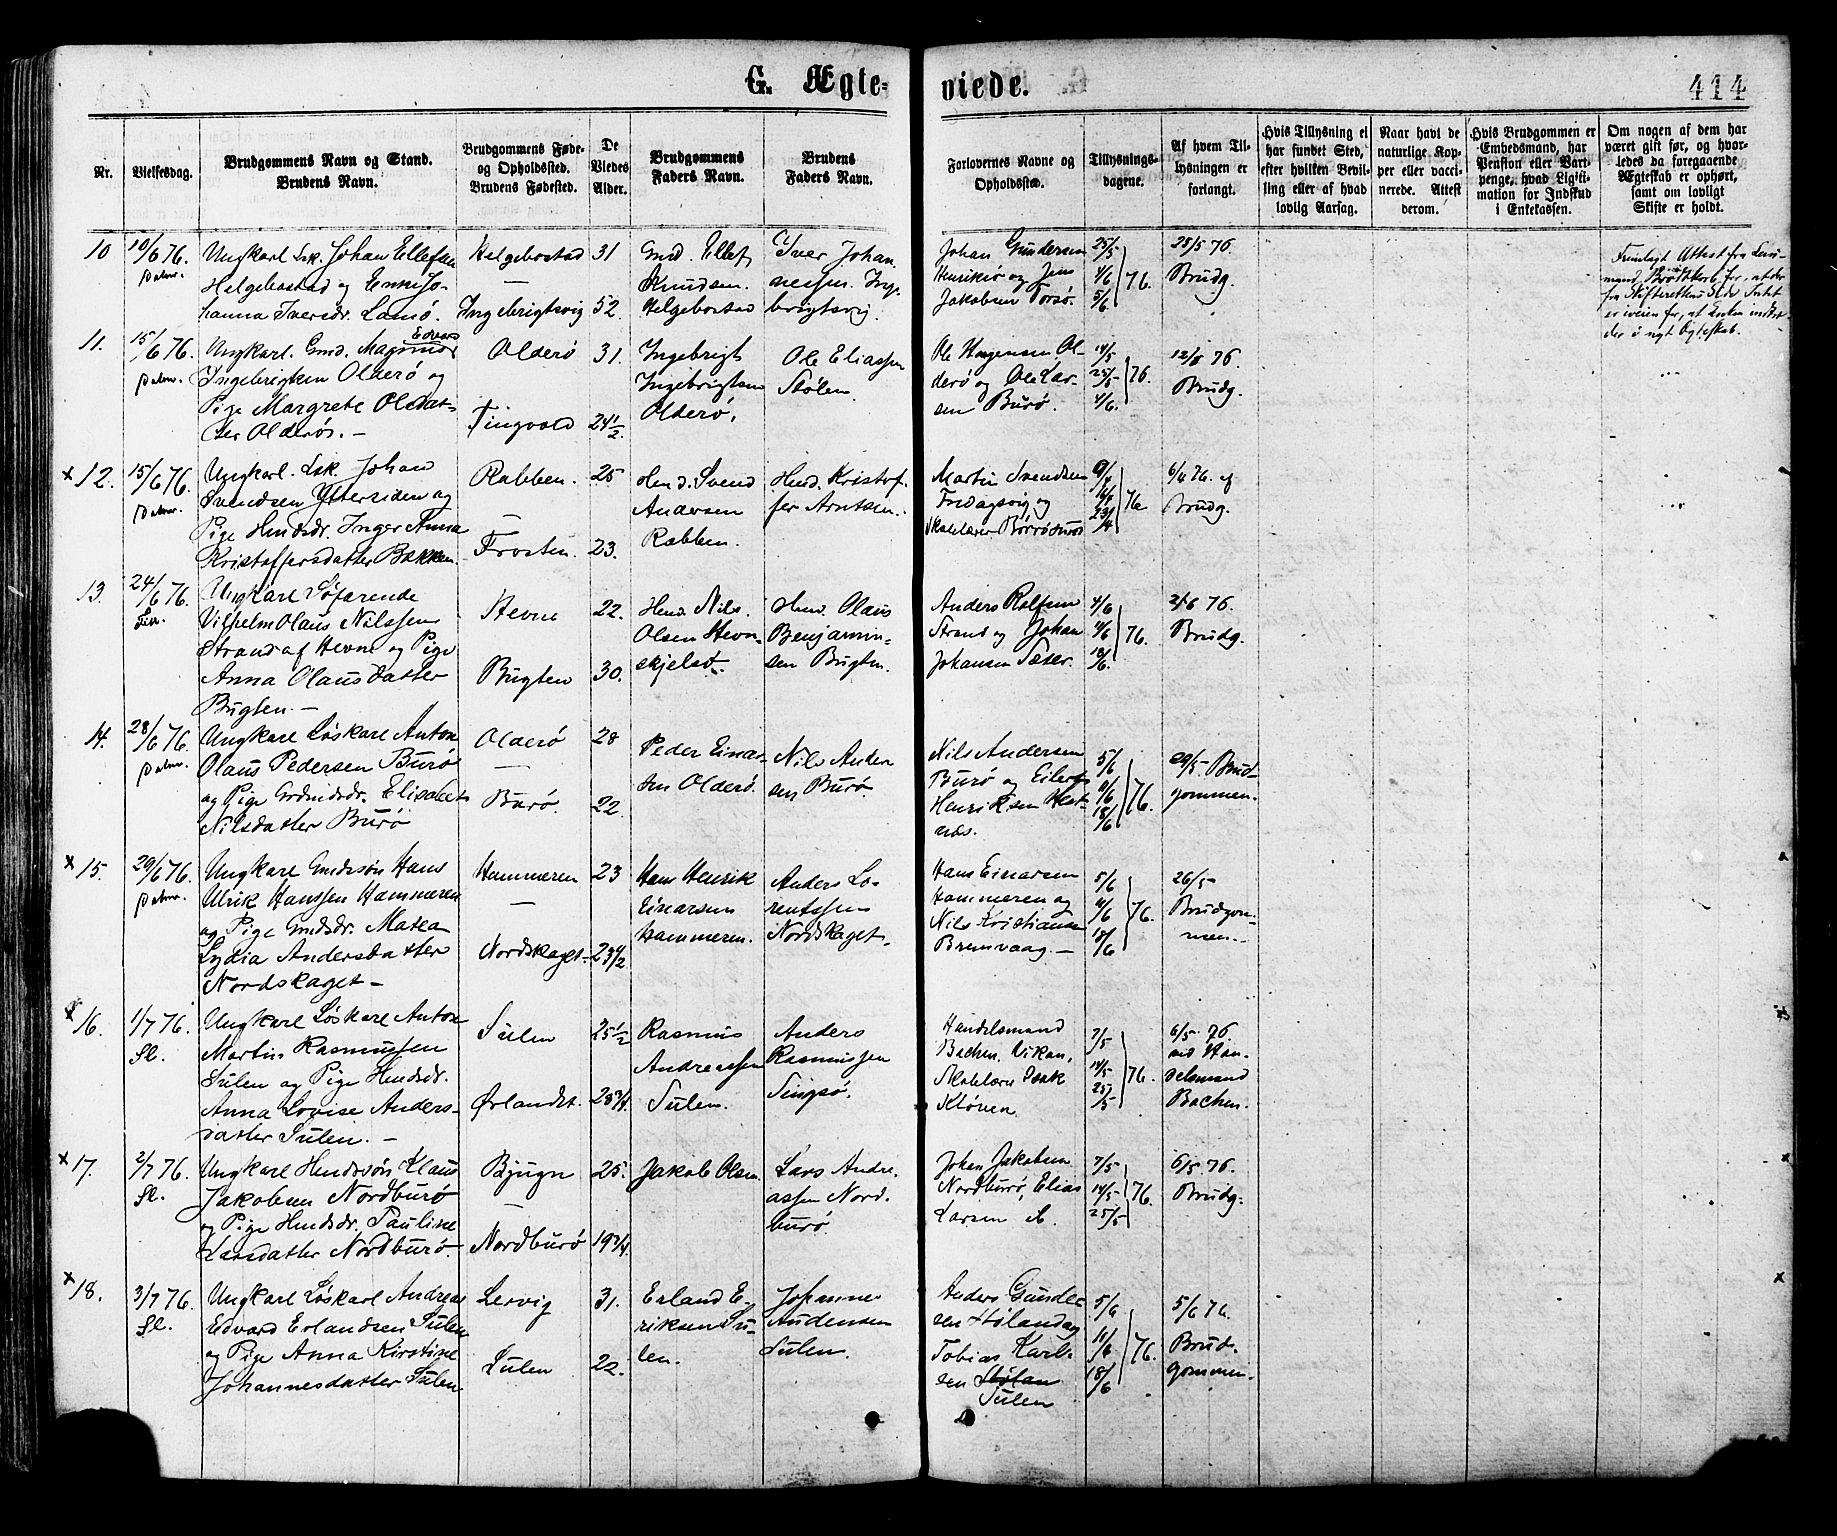 G. Ægte=
viede.
414
Nr.
Vielsesdag.
Brudgommens Navn og Stand.
Brudens Navn.
Brudgommens Føde-
og Opholdssted.
Brudens Fødested.
De
Viedes
Alder.
Brudgommens
Faders Navn.
Brudens
Faders Navn.
Forlovernes Navne og
Opholdssted.
Tillysnings-
dagene.
Af hvem Til-
lysningen er
forlangt.
Hvis Tillysning ei
har fundet Sted,
efter hvilken Bevil-
ling eller af hvad
lovlig Aarsag.
Naar havt de
naturlige Kop-
per eller vacci-
nerede. Attest
derom.
Hvis Brudgommen er
Embedsmand, har
Pension eller Vart-
penge, hvad Ligiti-
mation for Indskud
i Enkekassen.
Om nogen af dem har
været gift før, og hvor-
ledes da foregaaende
Ægteskab er ophørt,
samt om lovligt
Skifte er holdt.
10
10/6 76.
Ungkarl Lsk. Johan Ellefsen
Helgebostad og Enke Jo-
hanna Iversdr. Lamö.
Helgebostad
Ingebrigtsvig
31
52.
Gmd. Ellef
Knudsen.
Helgebostad
Iver Johan-
nessen. Inge-
brigtsvig.
Johan Gundersen
Henriksö og Jens
Jakobsen Torsö.
25/5
4/6
5/6
76.
25/5 76.
Brudg.
11.
15/6 76.
Ungkarl. Gmd. Magnus Edvard
Ingebrigtsen Olderö og
Pige Margrete Olsdat-
ter Olderös. –
Olderö
Tingvold
31.
24 1/2.
Ingebrigt
Ingebrigtsen
Olderö.
Ole Eliassen
Stölen.
Ole Hagensen Ol-
derö og Ole Lar-
sen Burö.
14/5
25/5
4/6.
76.
12/5 76.
Brudg.
x 12.
15/6 76.
Ungkarl. Lsk. Johan
Svendsen Ytterriden og
Pige Hmdsdr. Inger Anna
Kristoffersdatter Bakken
Rabben.
Frosten.
25
23.
Hmd. Svend
Andersen
Rabben.
Hmd. Kristof-
fer Arntsen.
Martin Svendsen
Fredagsvig og
Skolelærer
76
6/4 76. af
Brudg.
13.
24/6 76.
Ungkarl Söfarende
Vilhelm Olaus Nilssen
Strand af Hevne og Pige
Anna Olausdatter
Bugten. –
Hevne
Bugten
22.
30.
Hmd. Nils
Olsen Hevn-
skjelsö.
Hmd. Olaus
Benjamin-
sen Bugten.
Anders Rolfsen
Strand og Johan
Johansen Sæter.
4/6
11/6
18/6.
76.
2/6 76.
Brudg.
14.
28/6 76.
Ungkarl Löskarl Anton
Olaus Pedersen Burö
og Pige Grdmdsdr. Elisabet
Nilsdatter Burö
Olderö
Burö.
28
22.
Peder Einar-
sen Olderö.
Nils Ander-
sen Burö.
Nils Andersen
Burö og Eilert
Henriksen Hest-
næs.
5/6
11/6
18/6
76.
29/5 Brud-
gommen.
x 15.
29/6 76.
Ungkarl Gmdssön Hans
Ulrik Hanssen Hammeren
og Pige Gmdsdr. Matea
Lydia Andersdatter
Nordskaget –
Hammeren
Nordskaget.
23
23 1/2
Hans Henrik
Einarsen
Hammeren.
Anders Lo-
rentssen
Nordskaget.
Hans Einarsen
Hammeren og
Nils Kristiansen
Bremvaag. –
5/6
11/6
18/6
76.
26/5
Brudgom-
men.
x 16.
1/7 76.
Sl.
Ungkarl Löskarl Anton
Martin Rasmussen
Sulen og Pige Hmdsdr.
Anna Lovise Anders-
datter Sulen. –
Sulen
Ørlandet.
25 1/2
28 3/4.
Rasmus
Andreassen
Sulen.
Anders
Rasmussen
Singsö.
Handelsmand
Bachen. Vikan,
Skolelærer Isak
Klöven
7/5
14/5
25/5
76.
6/5 76.
ved Han-
delsmand
Bachen.
x 17.
2/7 76.
Sl.
Ungkarl Hmdssön Klaus
Jakobsen Nordburö
og Pige Hmdsdr. Pauline
Larsdatter Nordburö.
Bjugn
Nordburö
25.
19 3/4.
Jakob Olsen.
Lars Andre-
assen Nord-
burö
Johan Jakobsen
Nordburö, Elias
Larsen
7/5
14/5
25/5
76.
6/5 76.
Brudg.
x 18.
3/7 76.
Sl.
Ungkarl Löskarl Andreas
Edvard Erlandsen Sulen
og Pige Anna Kirstine
Johannesdatter Sulen
Lervig
Sulen
31.
22.
Erland E-
riksen Su-
len.
Johannes
Audensen
Sulen.
Anders Gunder-
sen Hölan og
Tobias Karl-
sen Hölan
Sulen
5/6
11/6
18/6
76.
5/6 76.
Brud-
gommen.